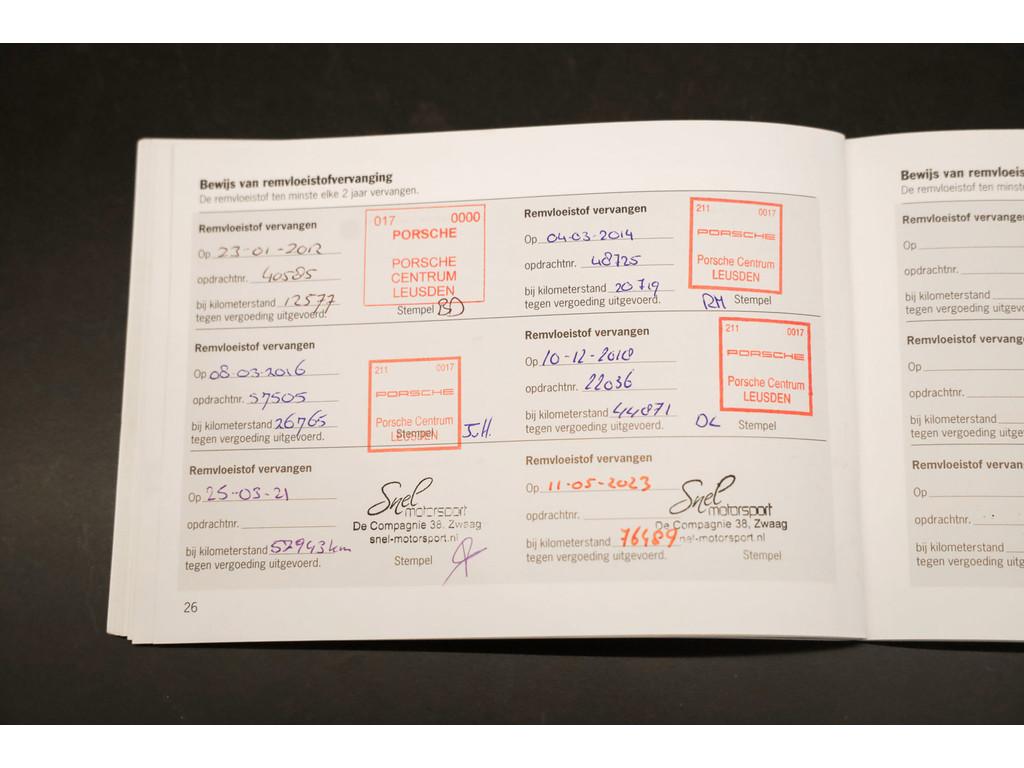 Bewijs van remvloeistofvervanging
De remvloeistof ten minste elke 2 jaar vervangen.
Remvloeistof vervangen
Op 23-01-2012
opdrachtnr. 40585
bij kilometerstand 12577
tegen vergoeding uitgevoerd.
017 0000
PORSCHE
PORSCHE
CENTRUM
LEUSDEN
Stempel BD
Remvloeistof vervangen
Op 04-03-2014
opdrachtnr. 48725
bij kilometerstand 20719
tegen vergoeding uitgevoerd.
211 0017
PORSCHE
Porsche Centrum
LEUSDEN
RM Stempel
Remvloeistof vervangen
Op 08-03-2016
opdrachtnr. 57505
bij kilometerstand 26765
tegen vergoeding uitgevoerd.
211 0017
PORSCHE
Porsche Centrum
LEUSDEN
Stempel J.H.
Remvloeistof vervangen
Op 10-12-2018
opdrachtnr. 22036
bij kilometerstand 44871
tegen vergoeding uitgevoerd.
211 0017
PORSCHE
Porsche Centrum
LEUSDEN
DL Stempel
Remvloeistof vervangen
Op 25-03-21
opdrachtnr.
bij kilometerstand 57943km
tegen vergoeding uitgevoerd.
Snel
motorsport
De Compagnie 38, Zwaag
snel-motorsport.nl
Stempel
Remvloeistof vervangen
Op 11-05-2023
opdrachtnr.
bij kilometerstand 76489
tegen vergoeding uitgevoerd.
Snel
motorsport
De Compagnie 38, Zwaag
snel-motorsport.nl
Stempel
26
Bewijs van remvloeis
De remvloeistof ten minst
Remvloeistof vervange
Op
opdrachtnr.
bij kilometerstand
tegen vergoeding uitge
Remvloeistof vervange
Op
opdrachtnr.
bij kilometerstand
tegen vergoeding uitge
Remvloeistof vervan
Op
opdrachtnr.
bij kilometerstand
tegen vergoeding uitg